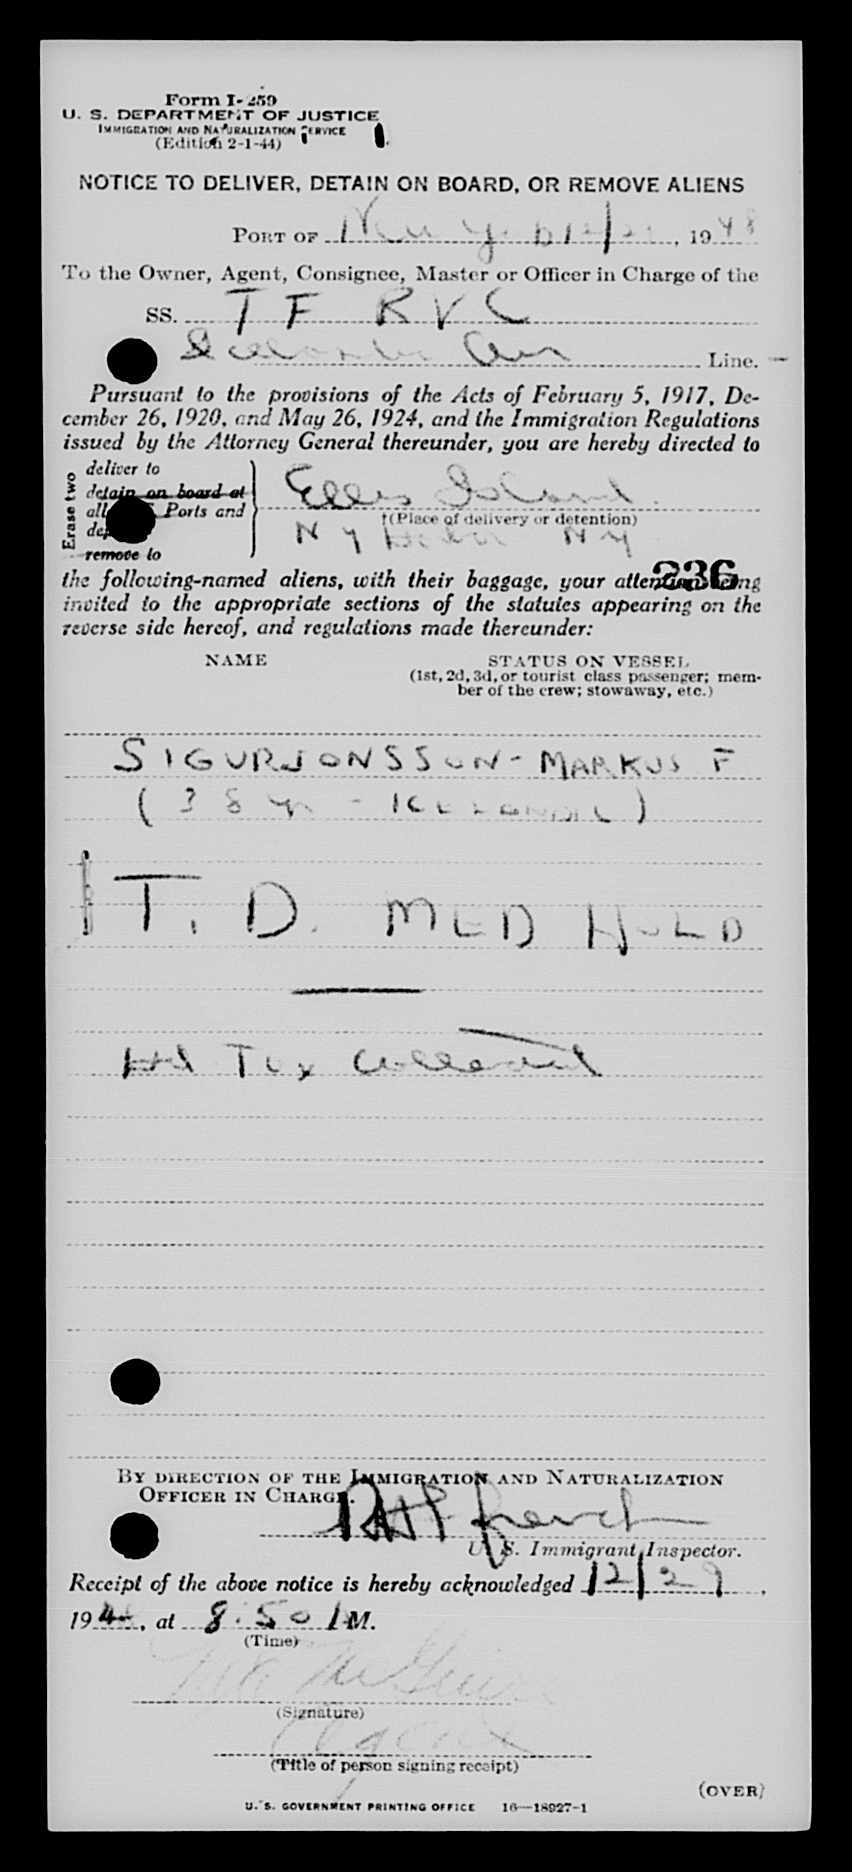 Form I-259
U. S. DEPARTMENT OF JUSTICE
IMMIGRATION AND NATURALIZATION SERVICE
(Edition 2-1-44)
NOTICE TO DELIVER, DETAIN ON BOARD, OR REMOVE ALIENS
PORT OF New York 12/29, 1948
To the Owner, Agent, Consignee, Master or Officer in Charge of the
SS. TF RVC
Icelandic Air Line.
Pursuant to the provisions of the Acts of February 5, 1917, De-
cember 26, 1920, and May 26, 1924, and the Immigration Regulations
issued by the Attorney General thereunder, you are hereby directed to
Erase two
deliver to
detain on board at
all Ports and
remove to
Ellis Island
†(Place of delivery or detention)
N Y Harbor N Y
236
the following-named aliens, with their baggage, your attention being
invited to the appropriate sections of the statutes appearing on the
reverse side hereof, and regulations made thereunder:
NAME STATUS ON VESSEL
(1st, 2d, 3d, or tourist class passenger; mem-
ber of the crew; stowaway, etc.)
SIGURJONSSON - MARKUS F
(38 yr - ICELANDIC)
T. D. MED HOLD
Hd Tax Collected
BY DIRECTION OF THE IMMIGRATION AND NATURALIZATION
OFFICER IN CHARGE.
U. S. Immigrant Inspector.
Receipt of the above notice is hereby acknowledged 12/29,
194, at 8:50 M.
(Time)
McGuire
(Signature)
Agent
(Title of person signing receipt)
(OVER)
U. S. GOVERNMENT PRINTING OFFICE 16—18927-1